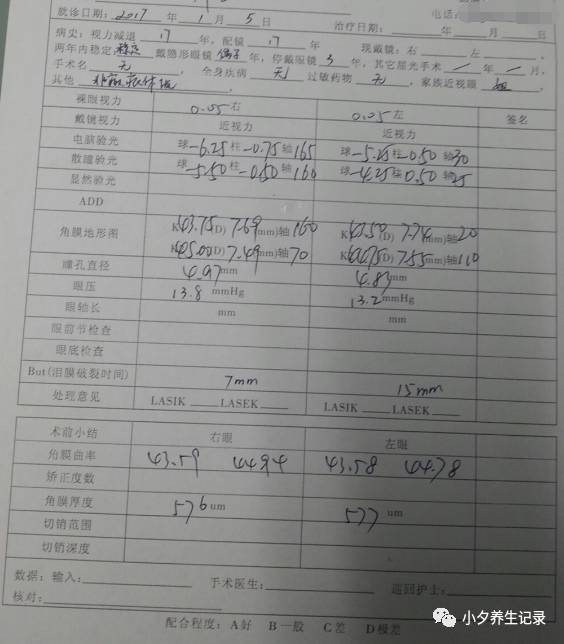 就诊日期: 2017 年 1 月 5 日 治疗日期: 年 月 日 电话:
病史: 视力减退 17 年, 配镜 17 年 现戴镜: 右 左 .
两年内稳定 稳定 戴隐形眼镜 偶尔 年, 停戴眼镜 3 年, 其它屈光手术 / 年 / 月,
手术名 无 , 全身疾病 无 过敏药物 无 , 家族近视眼
其他
裸眼视力 0.05 右 0.05 左 签名
戴镜视力 近视力 近视力
电脑验光 球-6.25 柱-0.75 轴165 球-5.25 柱-0.50 轴30
散瞳验光 球-5.50 柱-0.50 轴160 球-4.25 柱0.50 轴25
显然验光
ADD
角膜地形图 K43.75(D) 7.69mm)轴160 K43.50(D) 7.74mm)轴20
K45.00(D) 7.49mm)轴70 K44.75(D) 7.55mm)轴110
瞳孔直径 4.97mm 4.83mm
眼压 13.8 mmHg 13.2mmHg
眼轴长 mm mm
眼前节检查
眼底检查
But(泪膜破裂时间) 7mm 15mm
处理意见 LASIK LASEK LASIK LASEK
术前小结 右眼 左眼
角膜曲率 43.59 44.94 43.58 44.78
矫正度数
角膜厚度 576 um 577 um
切销范围
切销深度
数据: 输入: 手术医生: 巡回护士:
核对:
配合程度: A好 B一般 C差 D极差
小夕养生记录